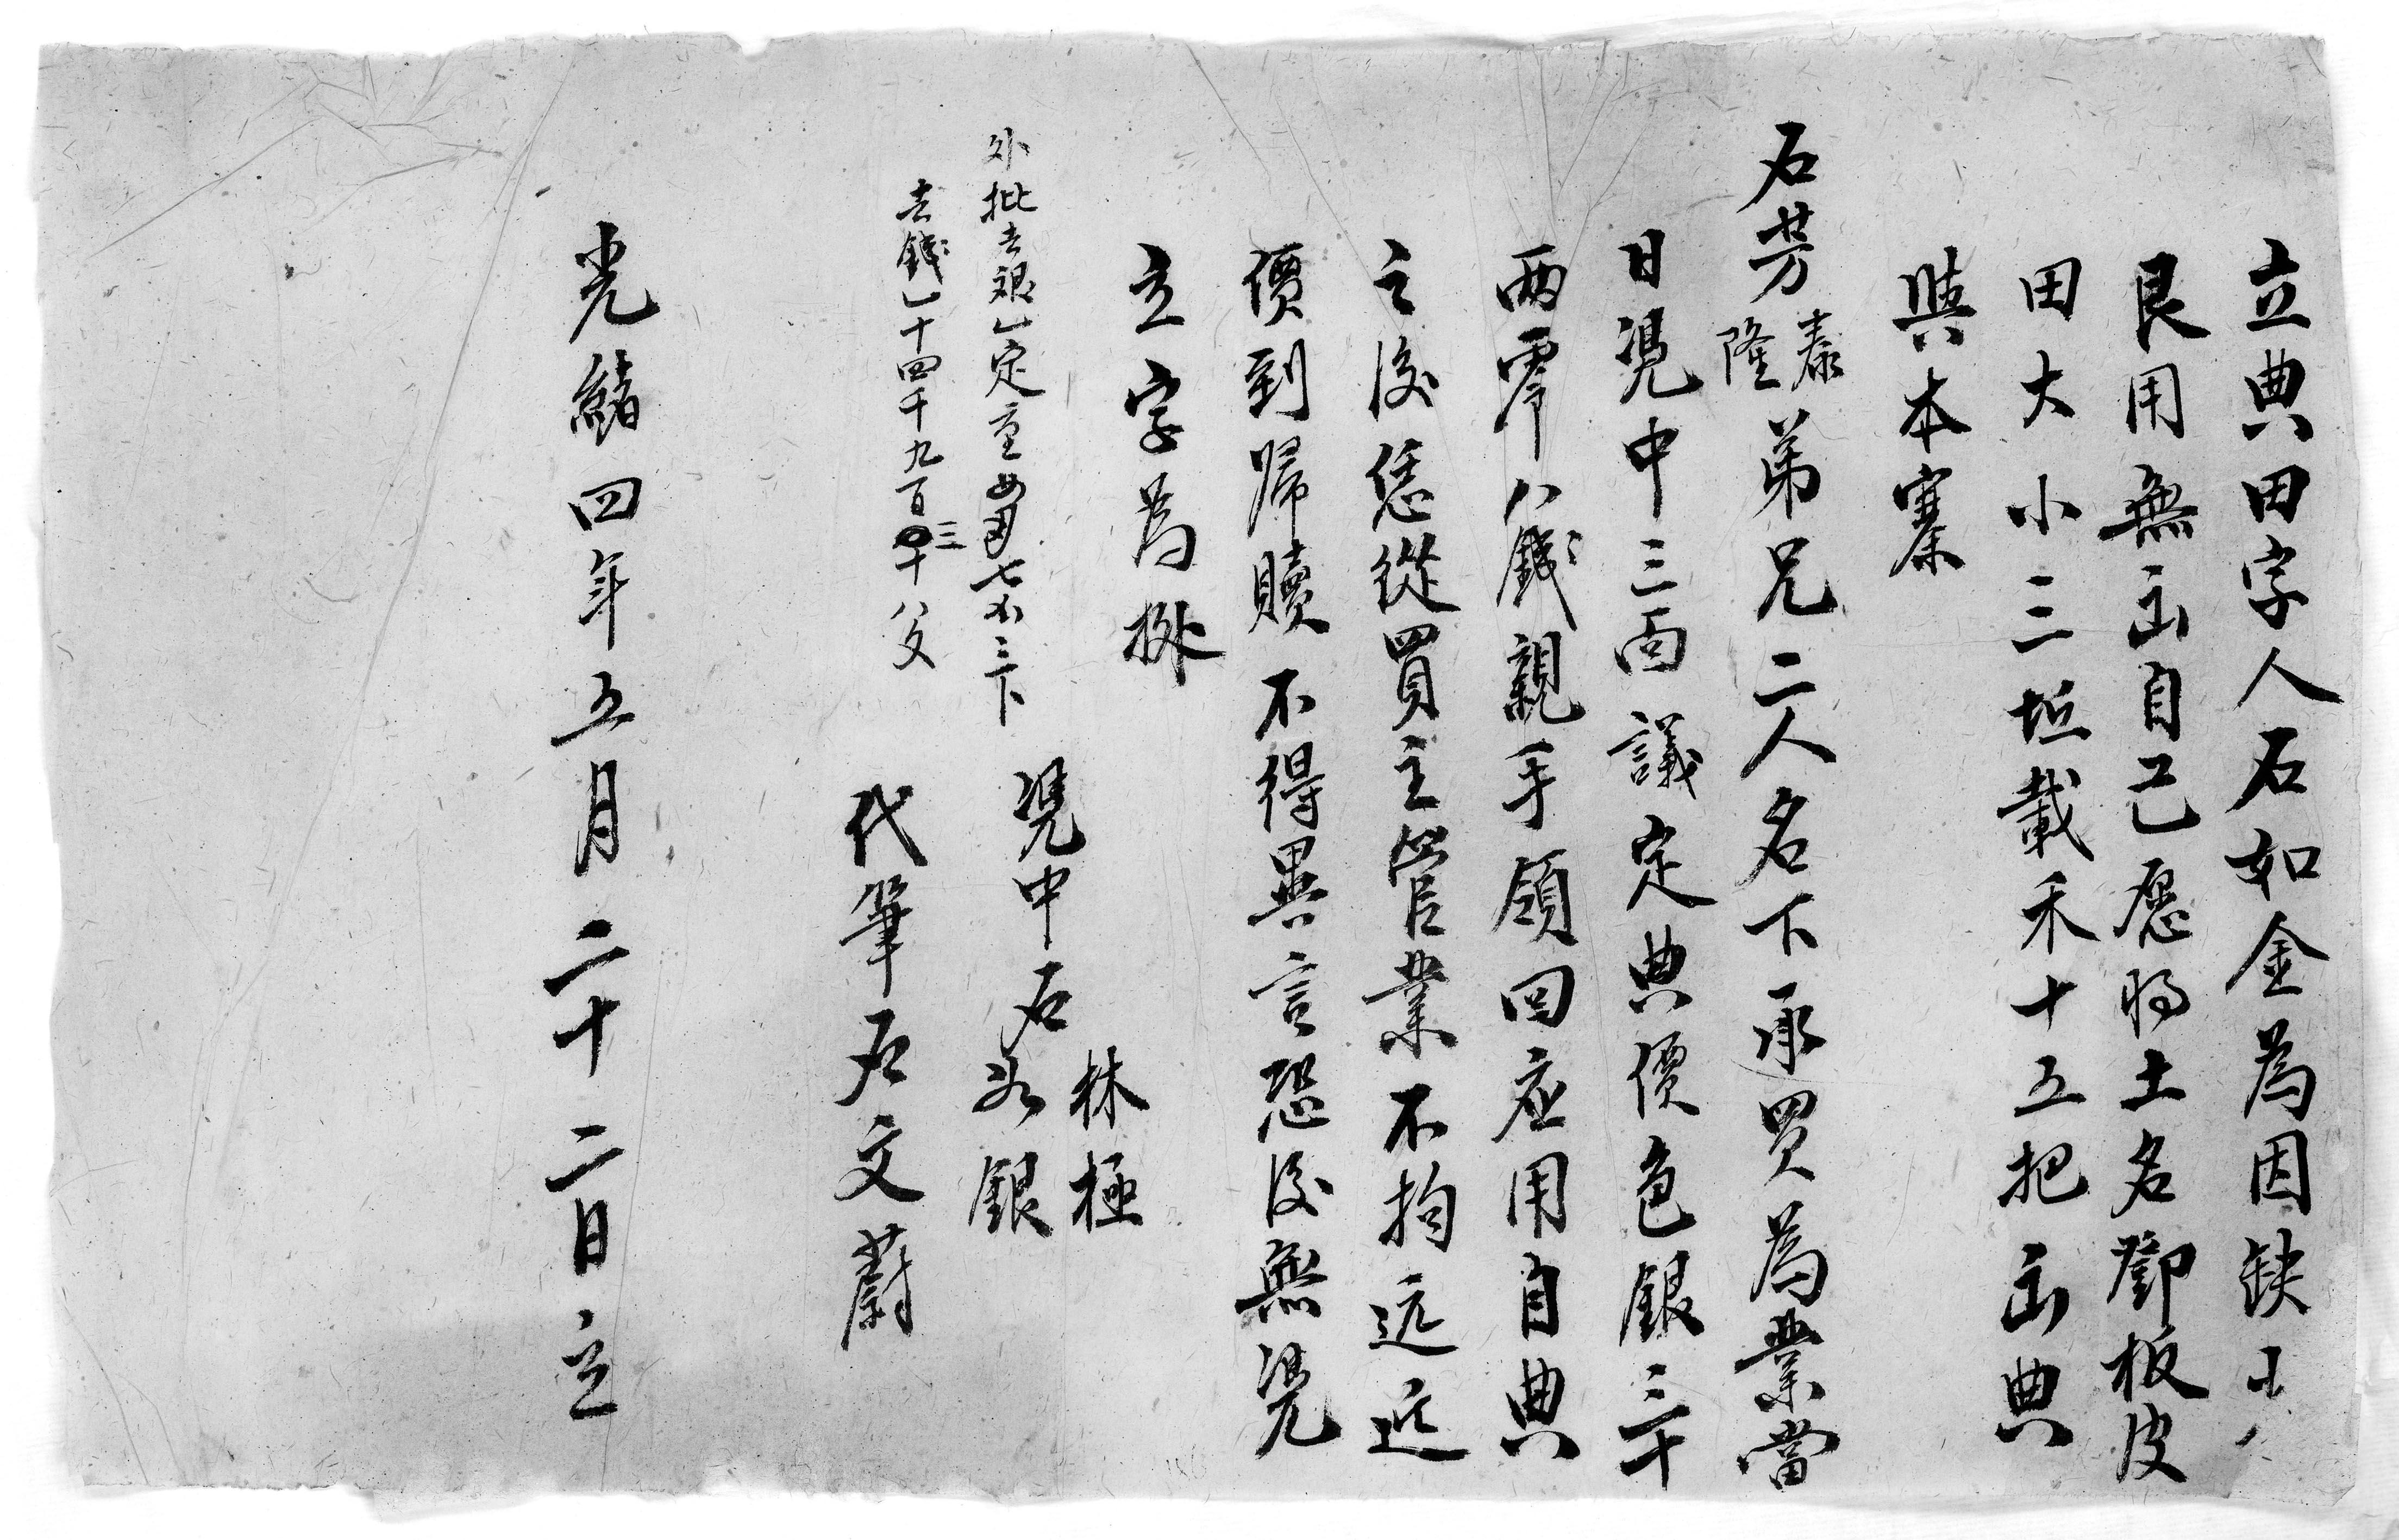 立典田字人石如金為因缺少
艮用無出自己愿將土名鄧板皮
田大小三坵載禾十五把出典
與本寨
石芳泰隆弟兄二人名下承買為業當
日凴中三面議定典價色銀三十
两零八錢親手領回应用自典
之後恁從買主管業不拘远近
價到歸贖不得異言恐後無凴
立字為據
外批去艮一定重
去錢一十四千九百三十八文
凴中石林極
永銀
代筆石文蔚
光緒四年五月二十二日立